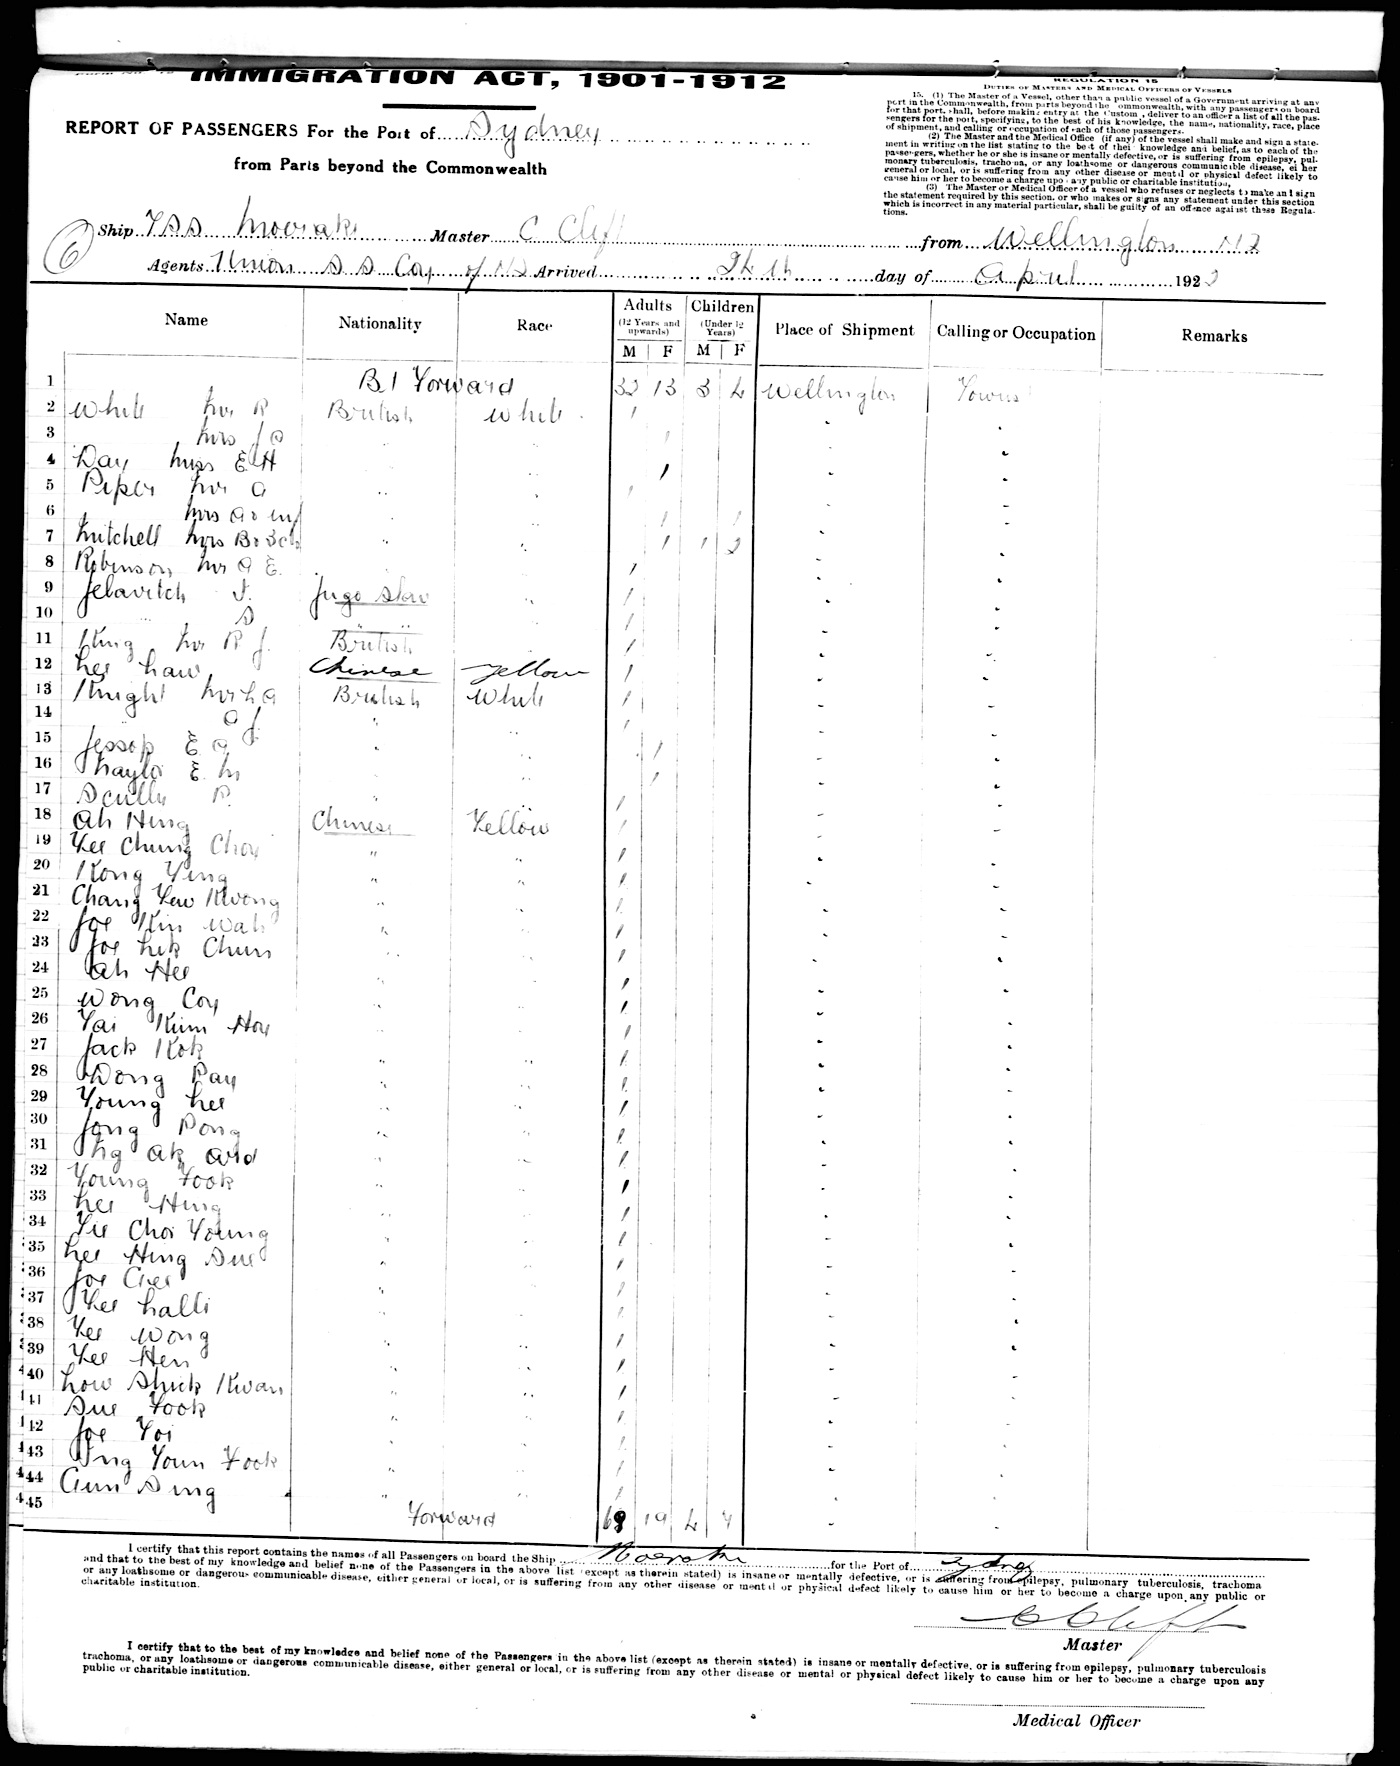 IMMIGRATION ACT, 1901-1912
REPORT OF PASSENGERS For the Port of Sydney
from Parts beyond the Commonwealth
REGULATION 15
DUTIES OF MASTERS AND MEDICAL OFFICERS OF VESSELS
15. (1) The Master of a Vessel, other than a public vessel of a Government arriving at any
port in the Commonwealth, from parts beyond the Commonwealth, with any passengers on board
for that port, shall, before making entry at the Custom, deliver to an officer a list of all the pas-
sengers for the port, specifying, to the best of his knowledge, the name, nationality, race, place
of shipment, and calling or occupation of each of those passengers.
(2) The Master and the Medical Office (if any) of the vessel shall make and sign a state-
ment in writing on the list stating to the best of their knowledge and belief, as to each of the
passengers, whether he or she is insane or mentally defective, or is suffering from epilepsy, pul-
monary tuberculosis, trachoma, or any loathsome or dangerous communicable disease, either
general or local, or is suffering from any other disease or mental or physical defect likely to
cause him or her to become a charge upon any public or charitable institution.
(3) The Master or Medical Officer of a vessel who refuses or neglects to make and sign
the statement required by this section, or who makes or signs any statement under this section
which is incorrect in any material particular, shall be guilty of an offence against these Regula-
tions.
6
Ship TSS Moeraki Master C Clift from Wellington NZ
Agents Union S S Coy of NZ Arrived 24th day of April 1922
Name Nationality Race Adults (12 Years and upwards) M F Children (Under 12 Years) M F Place of Shipment Calling or Occupation Remarks
1 Bt Forward 32 13 3 4 Wellington Tourist
2 White Mr R British White
3 Mrs J S
4 Day Miss E H
5 Piper Mr A
6 Mrs A & inf
7 Mitchell Mrs B & 3 ch 1 1 2
8 Robinson Mr A E.
9 Jelavitch J. Jugo Slav
10 " S
11 King Mr R J. British
12 Lee Haw Chinese Yellow
13 Knight Mr L A British White
14 O J.
15 Jessop E A
16 Naylor E. M
17 Scully P.
18 Ah Hing Chinese Yellow
19 Yee Chung Choy
20 Kong Ying
21 Chang Yew Kwong
22 Joe Kin Wah
23 Joe Lik Chun
24 Ah Hee
25 Wong Coy
26 Yai Kum Hoy
27 Jack Kok
28 Wong Pay
29 Young Lee
30 Jong Pong
31 Ng Ak
32 Young Fook
33 Lee Hing
34 Yee Choi Young
35 Lee Hing Sue
36 Joe Chee
37 Yee
38 Yee Wong
39 Yee Hen
40 Low Shick Kwan
41 Sue Fook
42 Joe Yoi
43 Ing Youn Fook
44 Gun Sing
45 Forward 68 19 4 7
I certify that this report contains the names of all Passengers on board the Ship Moeraki for the Port of Sydney
and that to the best of my knowledge and belief none of the Passengers in the above list (except as therein stated) is insane or mentally defective, or is suffering from epilepsy, pulmonary tuberculosis, trachoma
or any loathsome or dangerous communicable disease, either general or local, or is suffering from any other disease or mental or physical defect likely to cause him or her to become a charge upon any public or
charitable institution.
C Clift
Master
I certify that to the best of my knowledge and belief none of the Passengers in the above list (except as therein stated) is insane or mentally defective, or is suffering from epilepsy, pulmonary tuberculosis
trachoma, or any loathsome or dangerous communicable disease, either general or local, or is suffering from any other disease or mental or physical defect likely to cause him or her to become a charge upon any
public or charitable institution.
Medical Officer